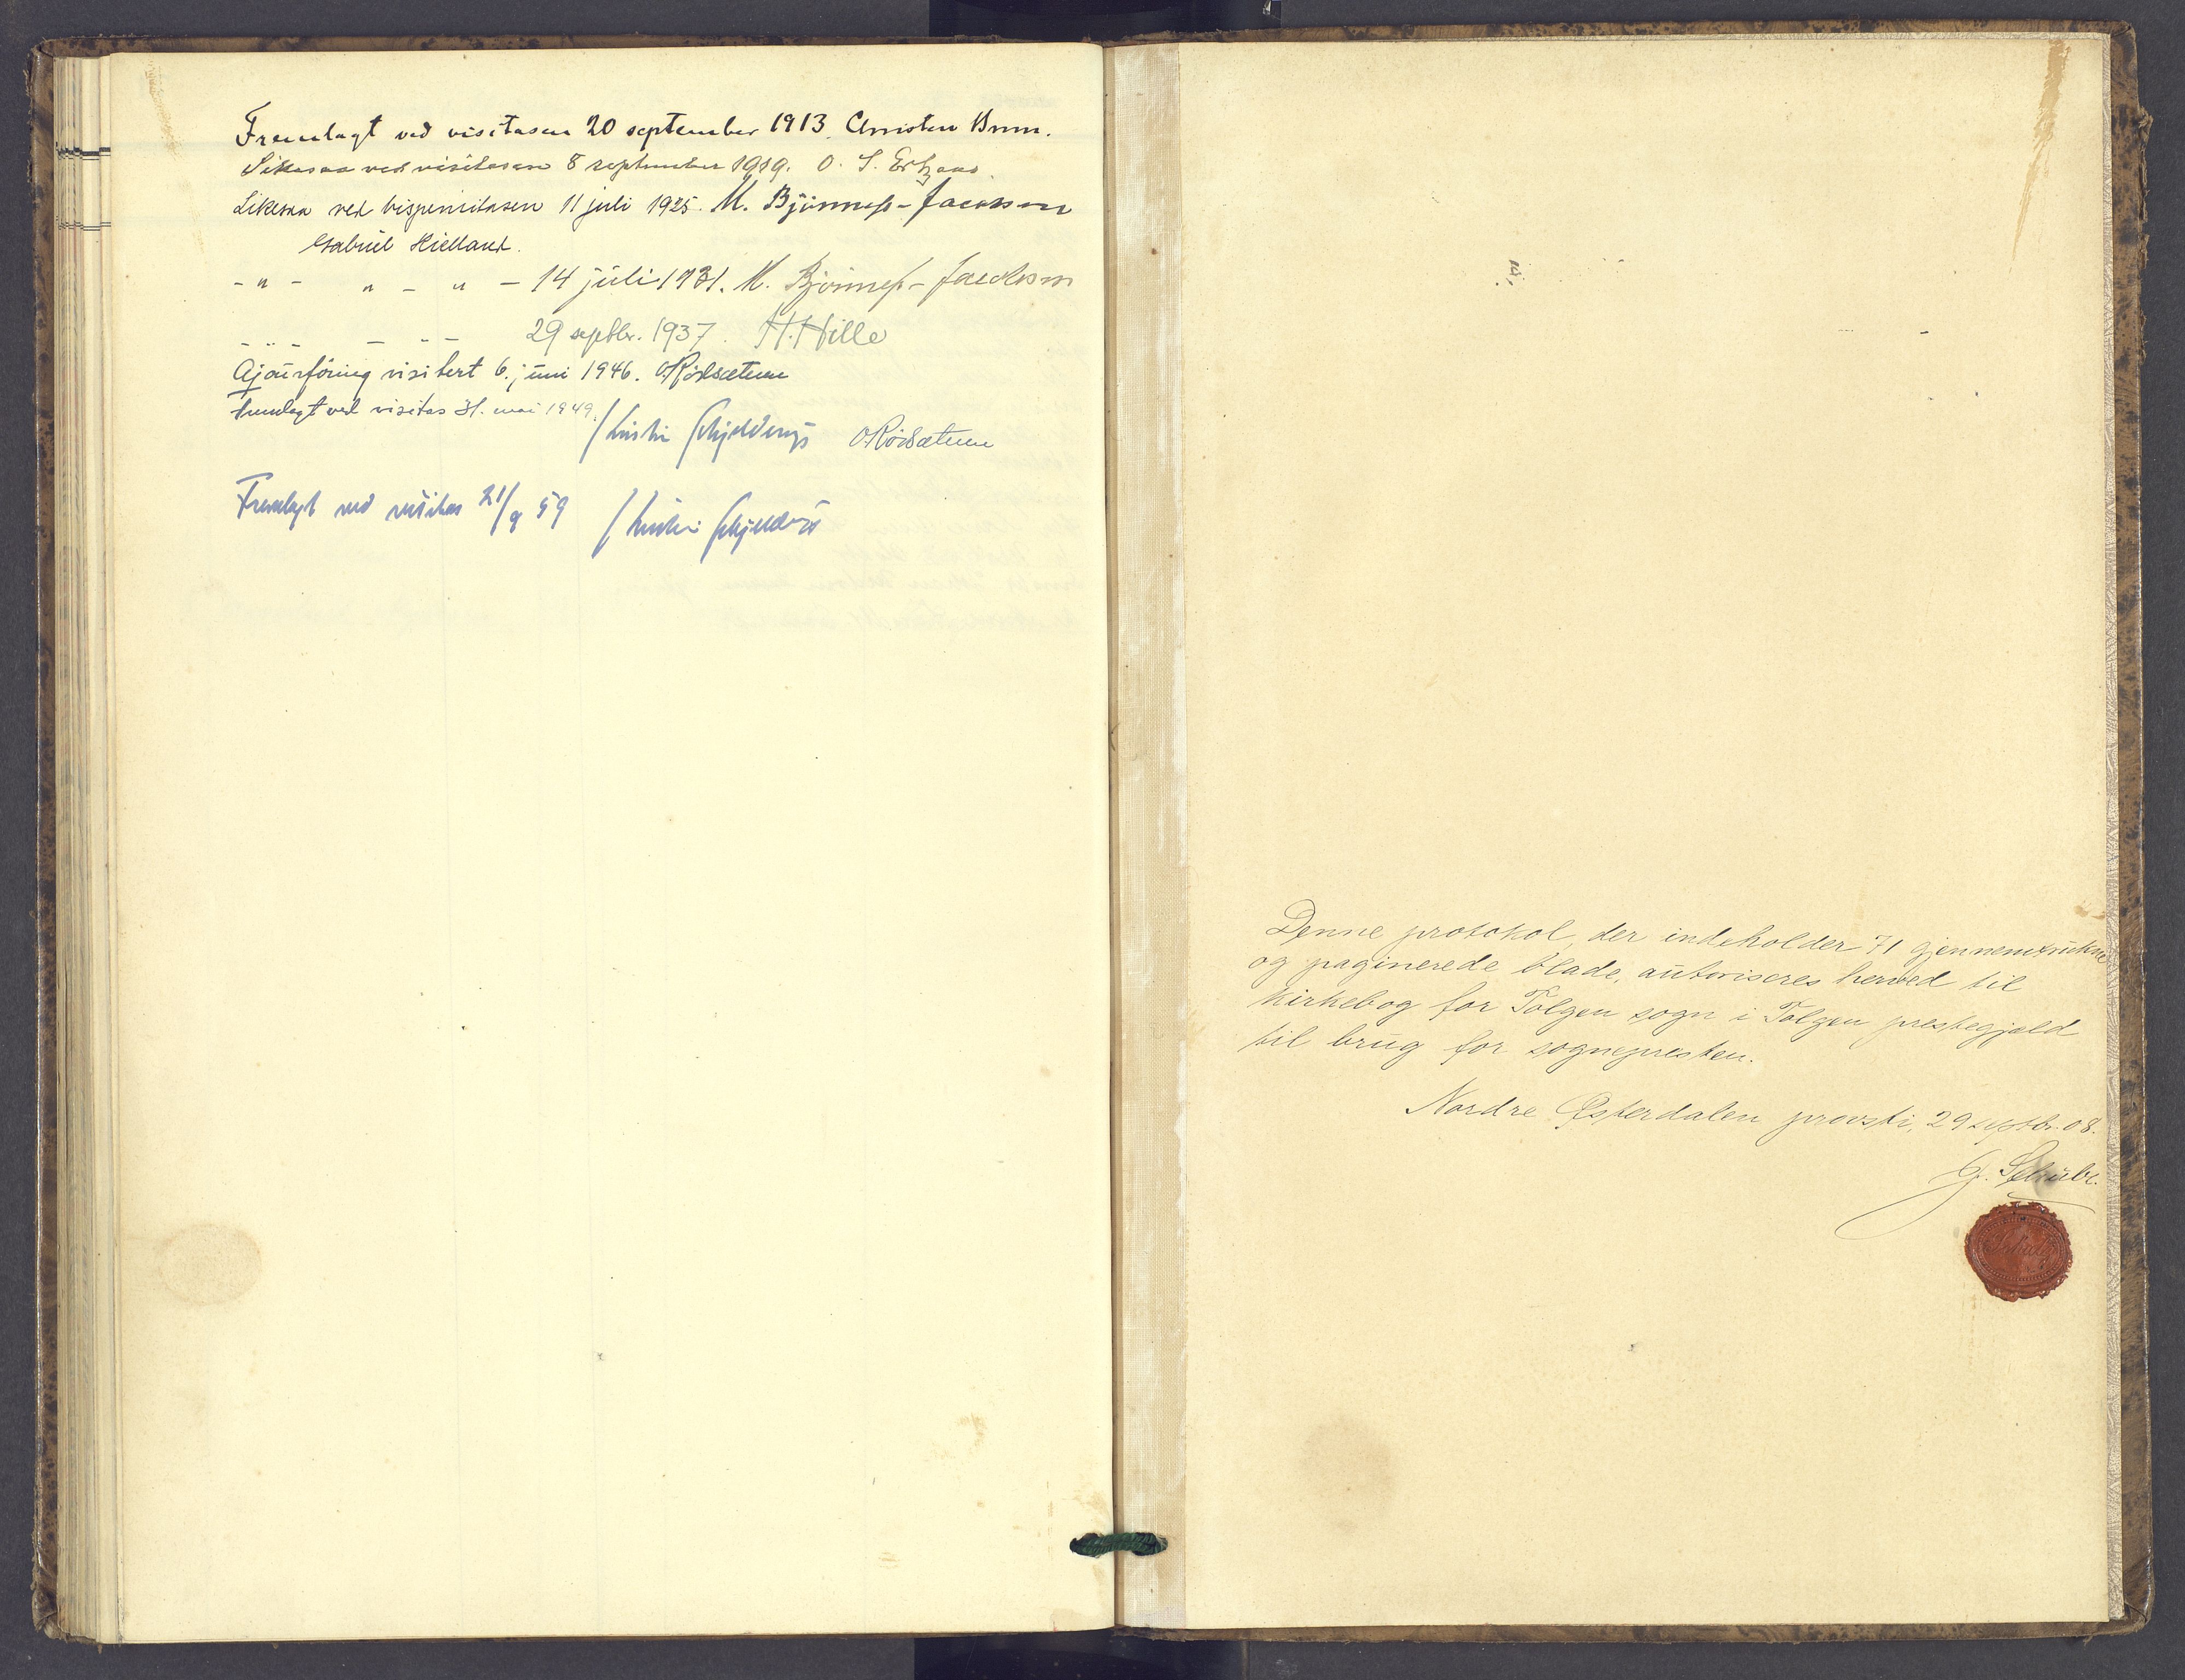 Fremlagt ved visitasen 20 september 1913. Christen Brun.
Likesaa ved visitasen 8 september 1919. O. S.
Likesaa ved bispevisitasen 11 juli 1925. M. Bjønness-Jacobsen
Gabriel Kielland.
- " - " - " - 14 juli 1931. M. Bjønness-Jacobsen
- " - - " - 29 septbr. 1937. H. Hille
Ajourføring visitert 6. juni 1946. O. Rödsætuen
Fremlagt ved visitas 31. mai 1949.
/ Kristian Schjelderup O. Rödsætuen
Fremlagt ved visitas 21/9 59 / Kristian Schjelderup
Denne protokol, der indeholder 71 gjennemtrukne
og paginerede blade, autoriseres herved til
kirkebog for Tolgen sogn i Tolgen prestegjæld
til brug for sognepresten.
Nordre Østerdalen provsti, 29 septbr. 08.
G. Schübe.